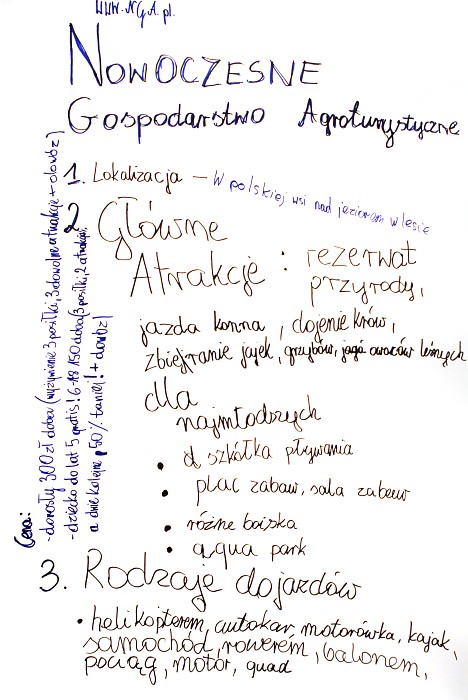 WWW.NGA.pl.
NOWOCZESNE
Gospodarstwo Agroturystyczne
1. Lokalizacja – W polskiej wsi nad jeziorem w lesie
2 Główne
Atrakcje : rezerwat
przyrody,
jazda konna, dojenie krów,
zbiejranie jajek, grzybów, owoców leśnych
dla
najmłodszych
• szkółka pływania
• plac zabaw, sala zabaw
• różne boiska
• aqua park
3. Rodzaje dojazdów
• helikopterem, autokar, motorówka, kajak,
samochód, rowerem, balonem,
pociąg, motor, quad
Cena:
- dorosły 300 zł doba (wyżywienie 3 posiłki, 3 dowolne atrakcje + dowóz)
- dziecko do lat 5 gratis! 6-18 150 doba (3 posiłki, 2 atrakcje,
a dwie kolejne p 50% taniej! + dowóz)